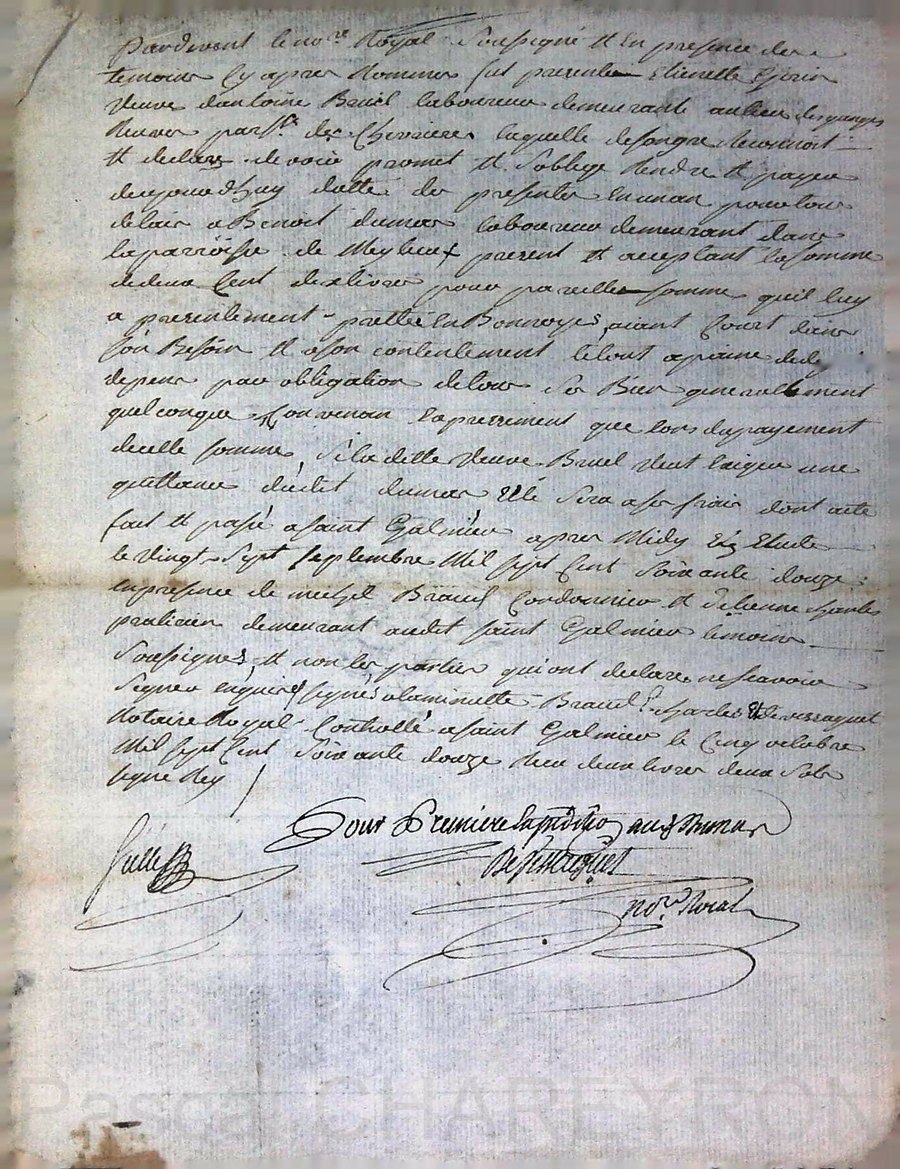 Pardevant le no.re Royal Soussigné et En presence des
temoins Cy apres Nommes fut presente Etienette
veuve dantoine Bruel laboureur demeurante au lieu des granges
par.sse de Cherrieres laquelle de Son gre Reconnoit
et declare devoir promet et Soblige Rendre et payer
dujourdhuy datte des presentes En un an pour tout
delais a Benoit dumas laboureur demeurant dans
la parroisse de Meylieux present et aceptant la Somme
de deux Cent dix livres pour pareille Somme quil luy
a presentement prettée En Bonnoyes aiant Court dans
Son Besoin et a Son contentement le tout a peine de
depens par obligation de tous Ses Bien generallement
quelconque Convenan Expressement que lors du payement
dicelle Somme Si la ditte veuve Bruel veut Exiguer une
quittance dudit dumas Elle Sera a Ses frais dont acte
fait et passé a Saint Galmier apres Midy En Etude
le vingt Sept Septembre Mil Sept Cent Soixante douze
En presence de michel Braud Cordonnier et Etienne charles
praticien demeurant audit Saint Galmier temoins
Soussignes et non les parties qui ont declare ne Scavoir
Signer Enquis Signés a la minutte Braud Charles Et
Notaire Royal Controllé a Saint Galmier le Cinq octobre
Mil Sept Cent Soixante douze Reçu deux livres deux Sols
Signé Rey
Pour Premiere Expeditio aud Dumas
no.re Roial
Pascal CHAREYRON